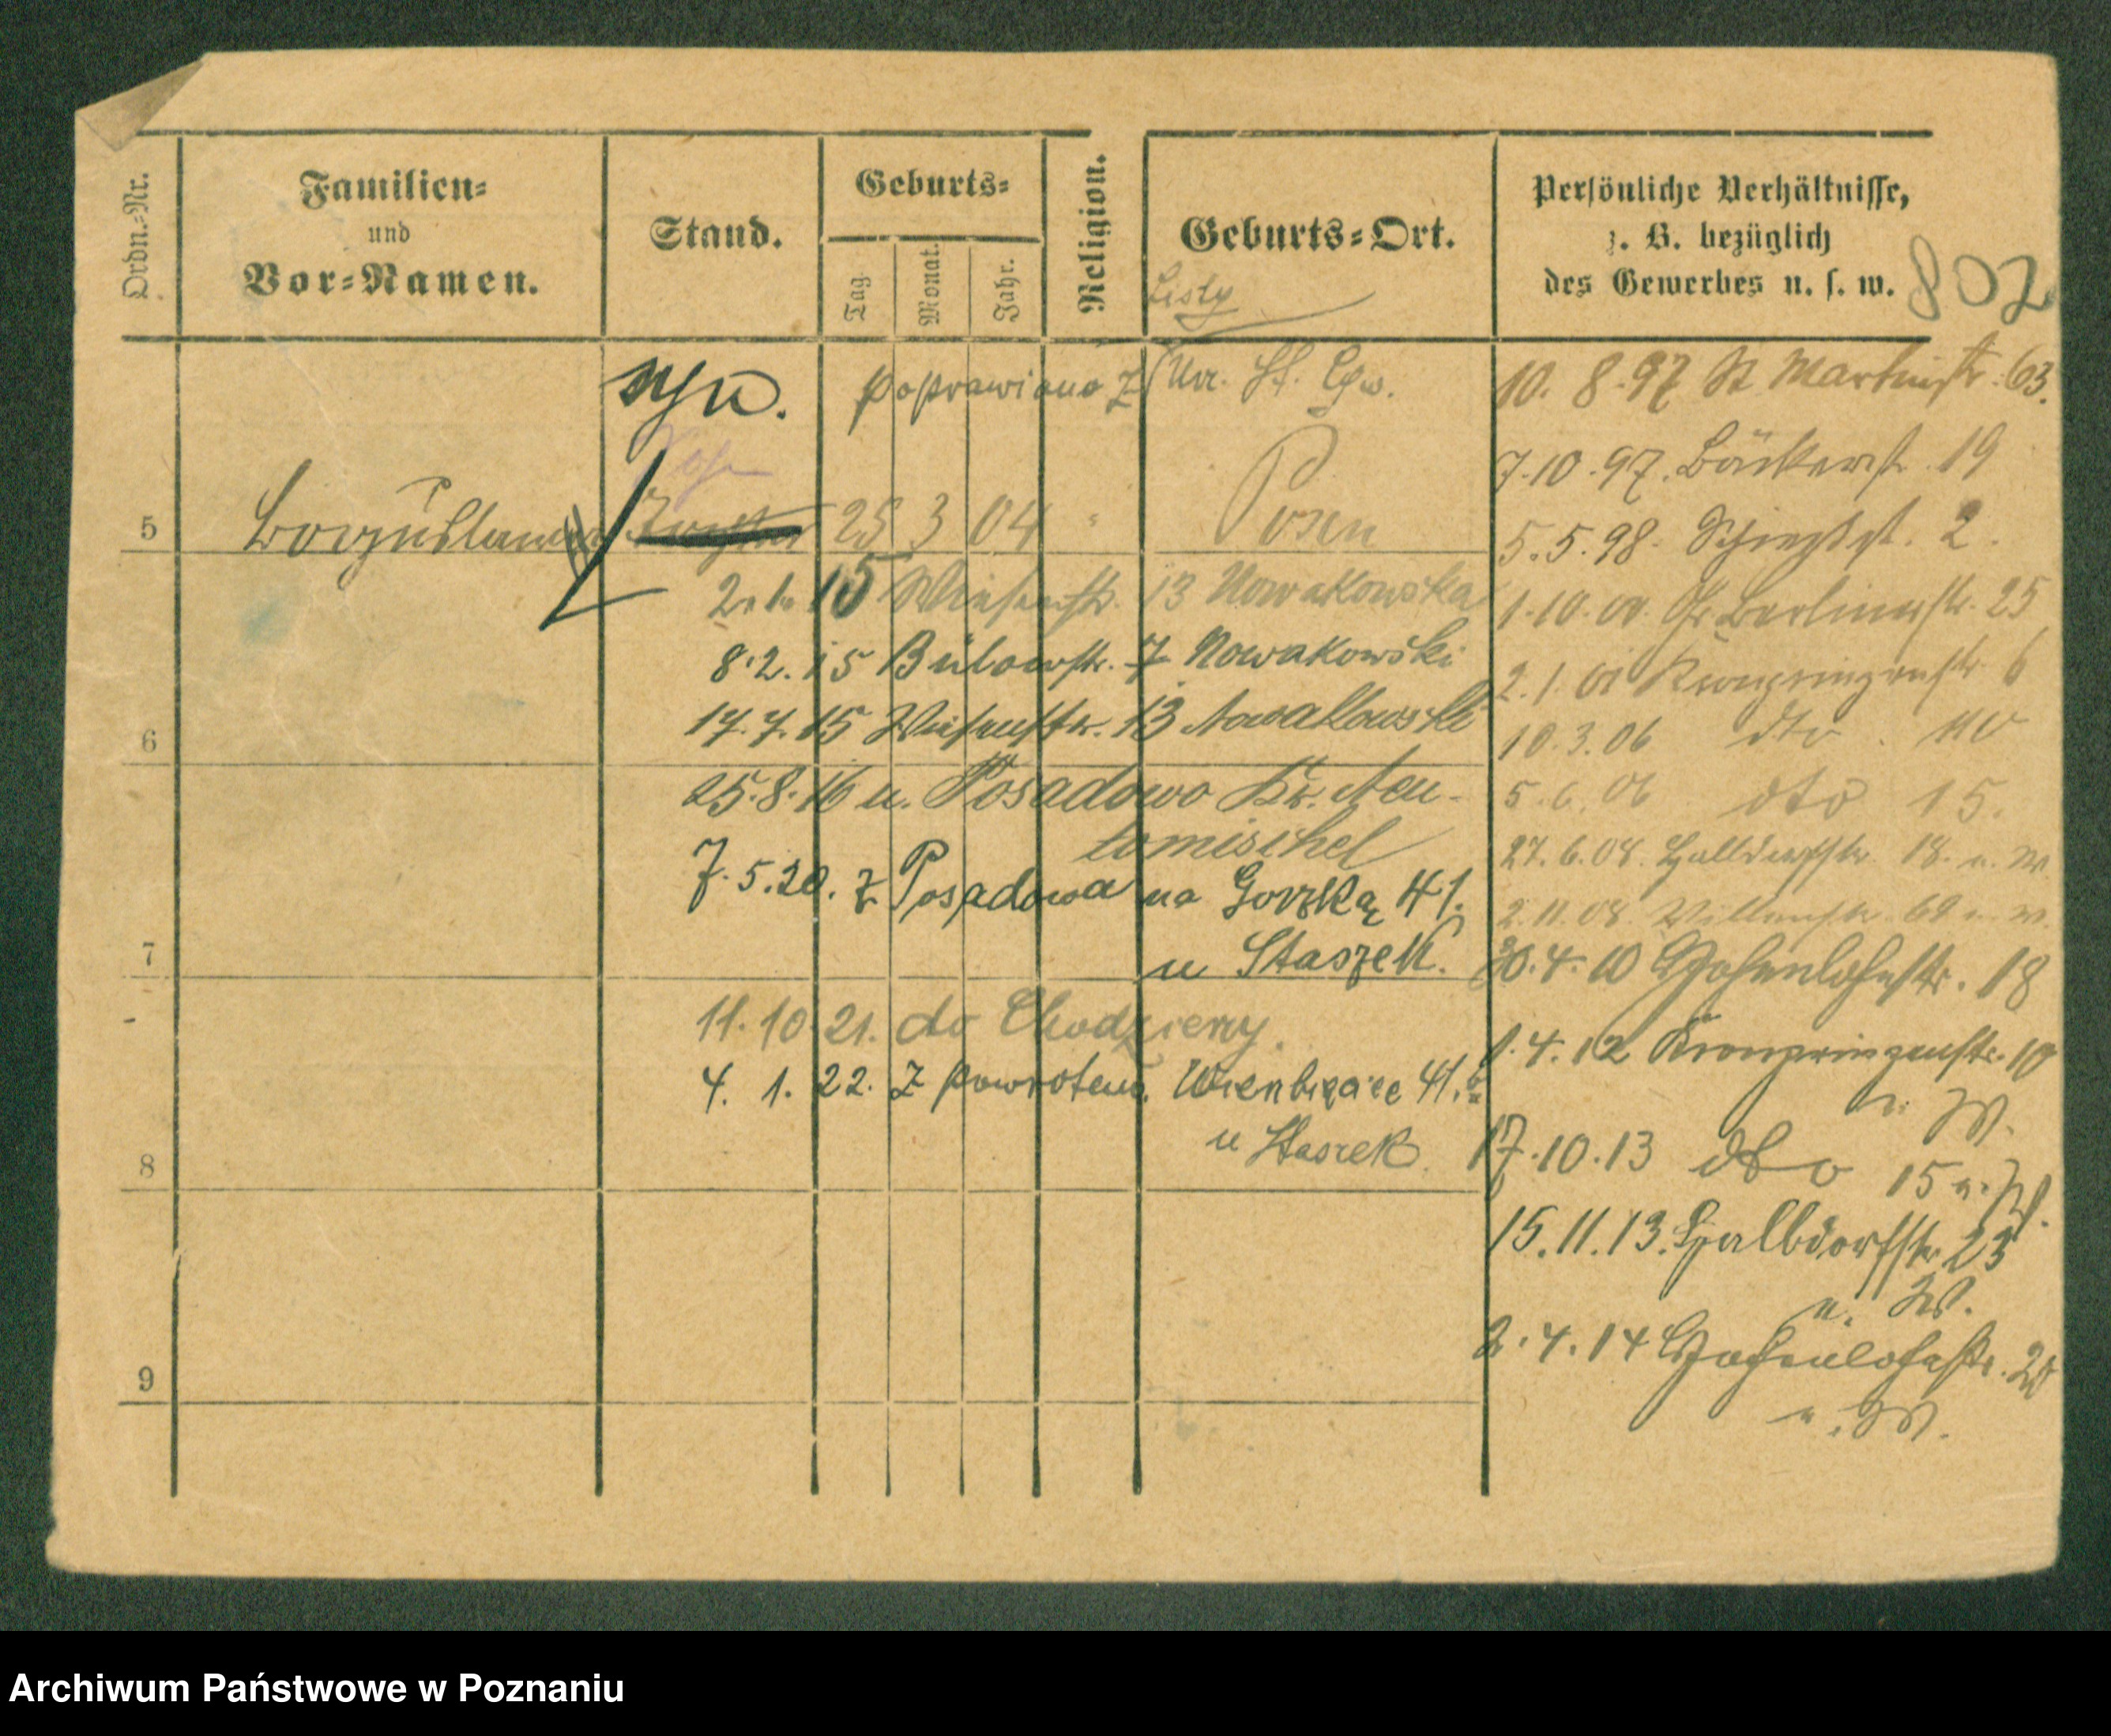 Ordn.-Nr.
Familien-
und
Vor-Namen.
Stand.
Geburts-
Tag
Monat.
Jahr.
Religion.
Geburts-Ort.
Persönliche Verhältnisse,
z. B. bezüglich
des Gewerbes u. s. w.
802
Listy
syn.
poprawiono z Urz. St. Cyw.
5
25 3 04 " Posen
2.1.15 Wiesenstr. 13 Nowakowska
8.2.15 Bülowstr. 7 Nowakowski
6
17.7.15 Wiesenstr. 13 Nowakowski
25.8.16 n. Posadowo Kr. Neu-
tomischel
7.5.20. z Posadowa na Górską 41.
7
u Staszek.
11.10.21. do Chodzieży.
4. 1. 22. z powrotem. Wierzbięcice 41.
8
u Staszek.
9
10. 8. 97 St Martinstr. 63.
7.10.97. Bäckerst. 19
5.5.98. 2.
1.10.00. Gr Berlinerstr. 25
2.1.01 Kronprinzenstr 6
10.3.06 dto.
5.6.06 dto 15.
27.6.08. Halbdorfstr. 18. u. W
2.11.08. 69 u. W.
30.4.10 Hohenlohestr. 18
1.4.12 Kronprinzenstr. 10
u. W.
17.10.13 dto 15 u. W.
15.11.13. Halbdorfstr. 23
u. W.
2.4.14 Hohenlohestr. 20
u. W.
Archiwum Państwowe w Poznaniu